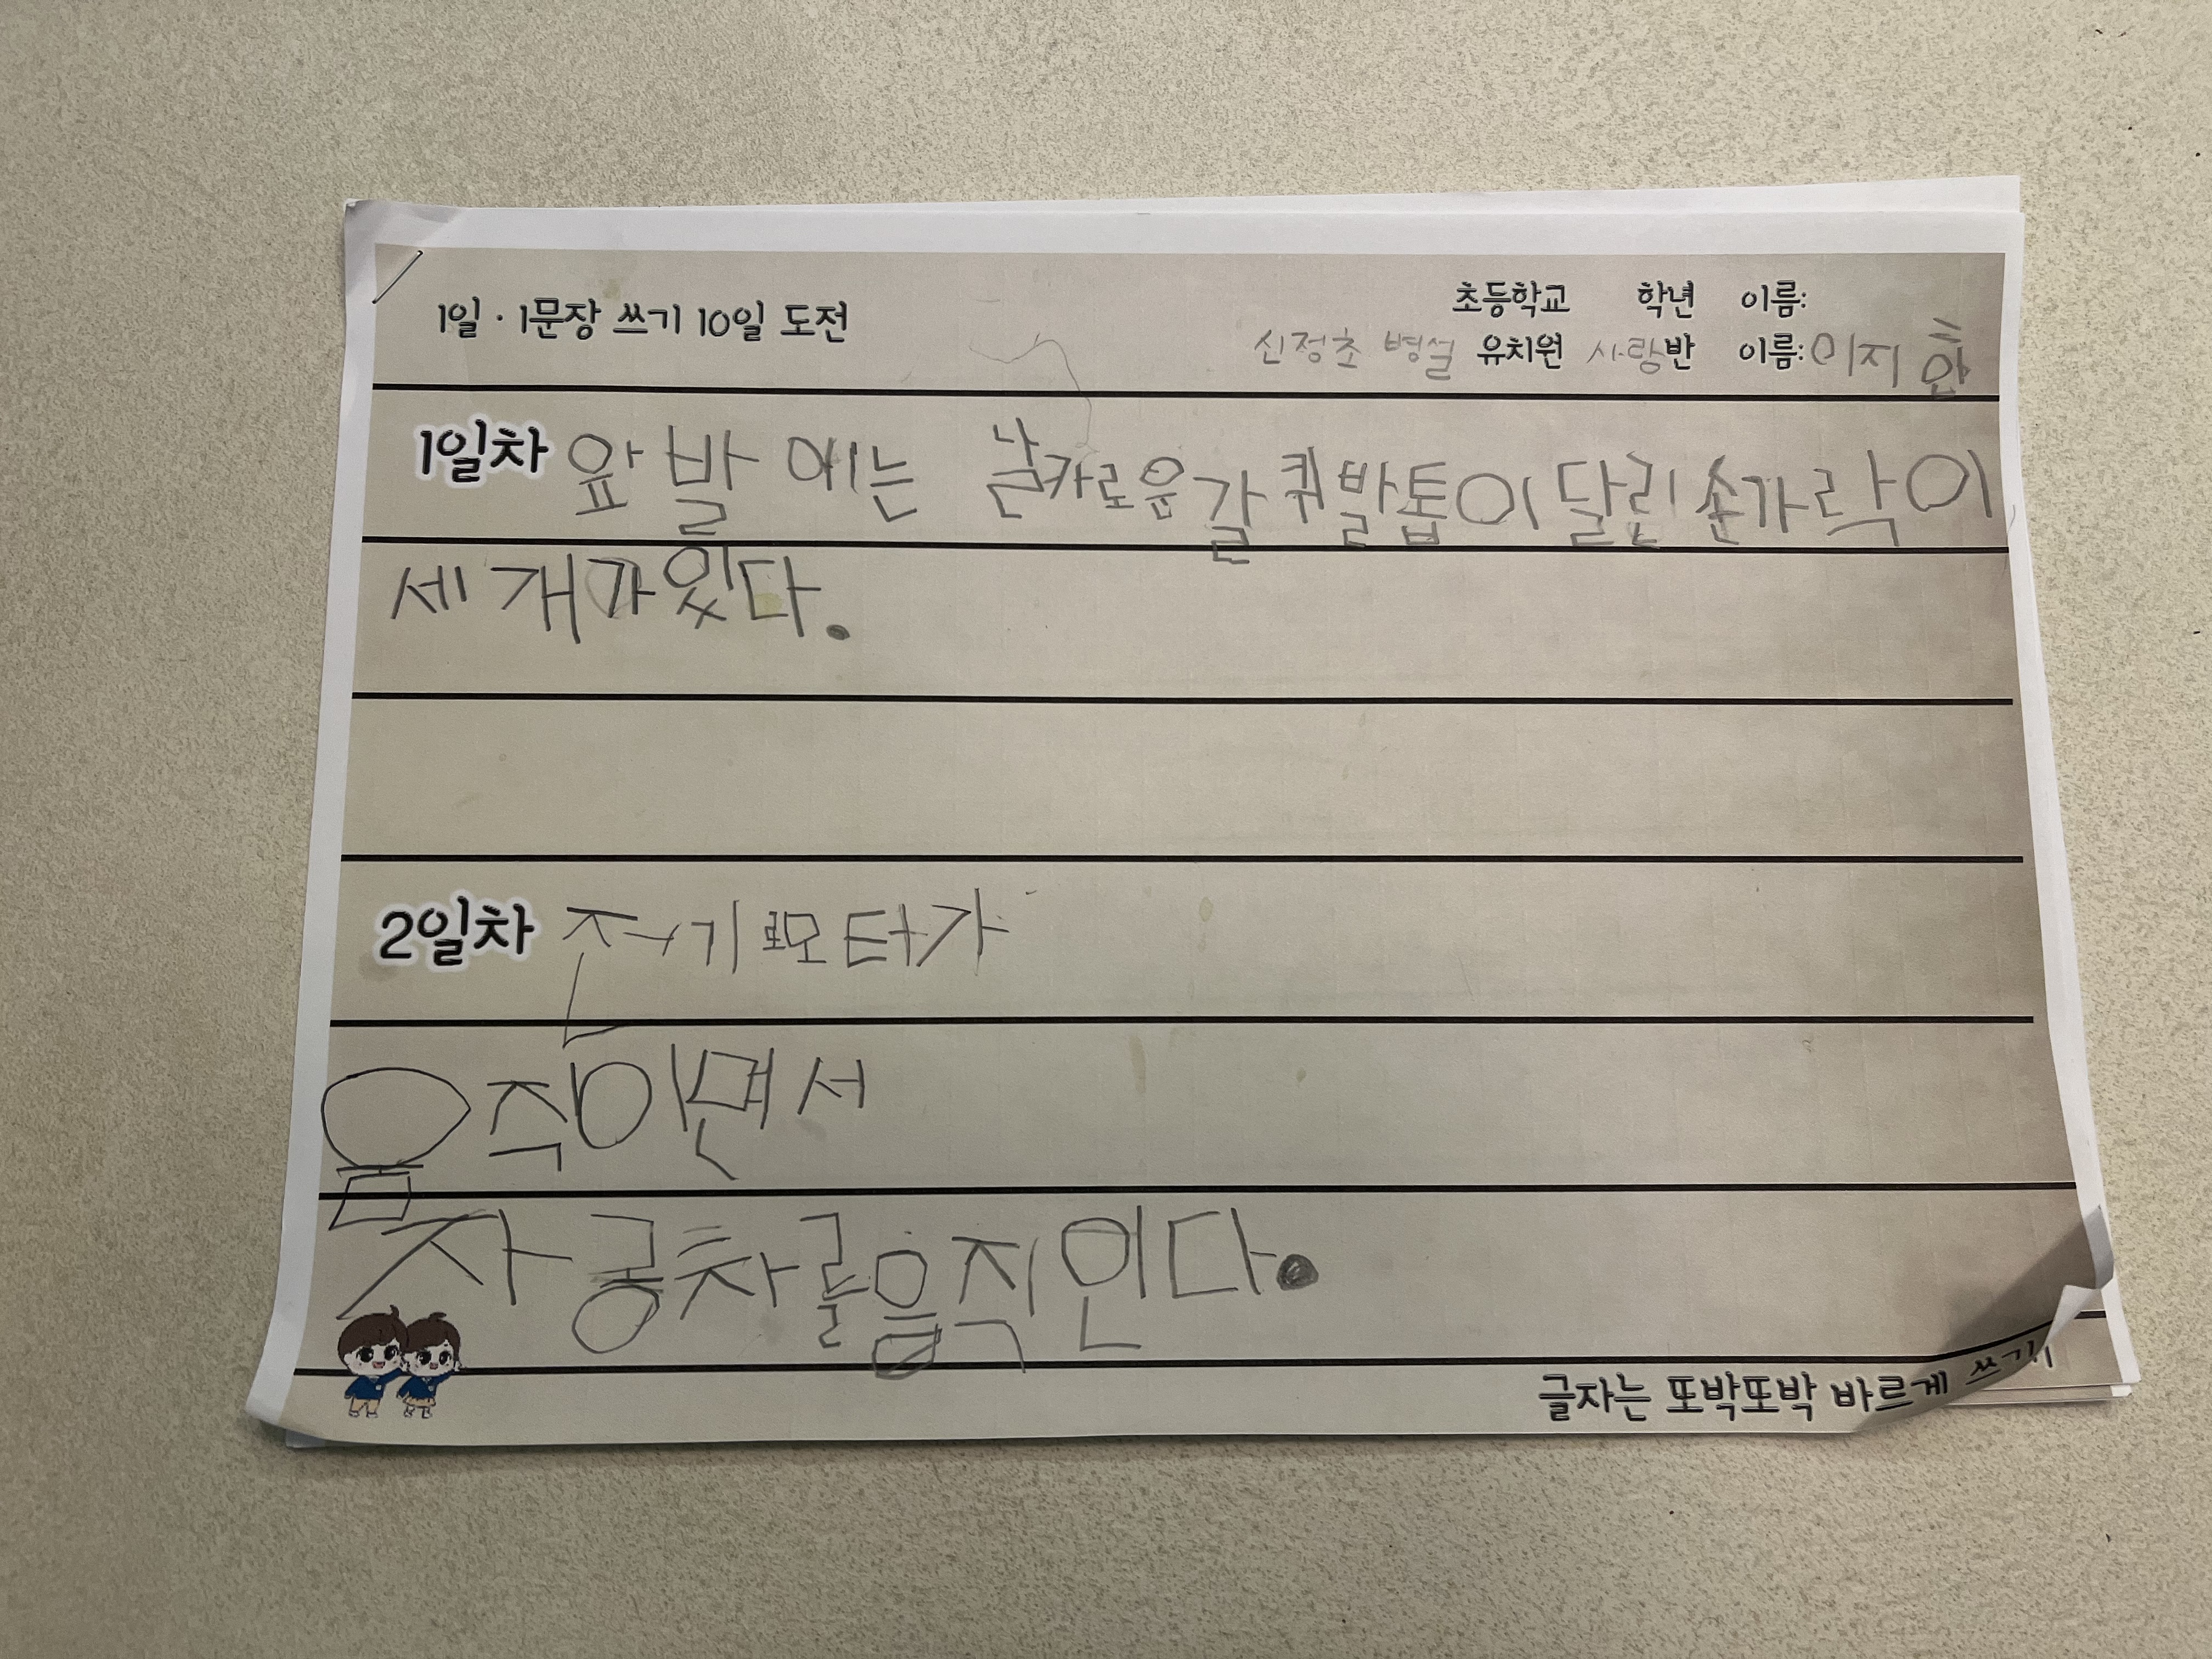 1일·1문장 쓰기 10일 도전
초등학교 학년 이름:
신정초 병설 유치원 사랑반 이름: 이지환
1일차 앞발에는 날카로운 갈퀴발톱이 달린 손가락이
세 개가 있다.
2일차 전기모터가
움직이면서
자동차를 움직인다.
글자는 또박또박 바르게 쓰기!